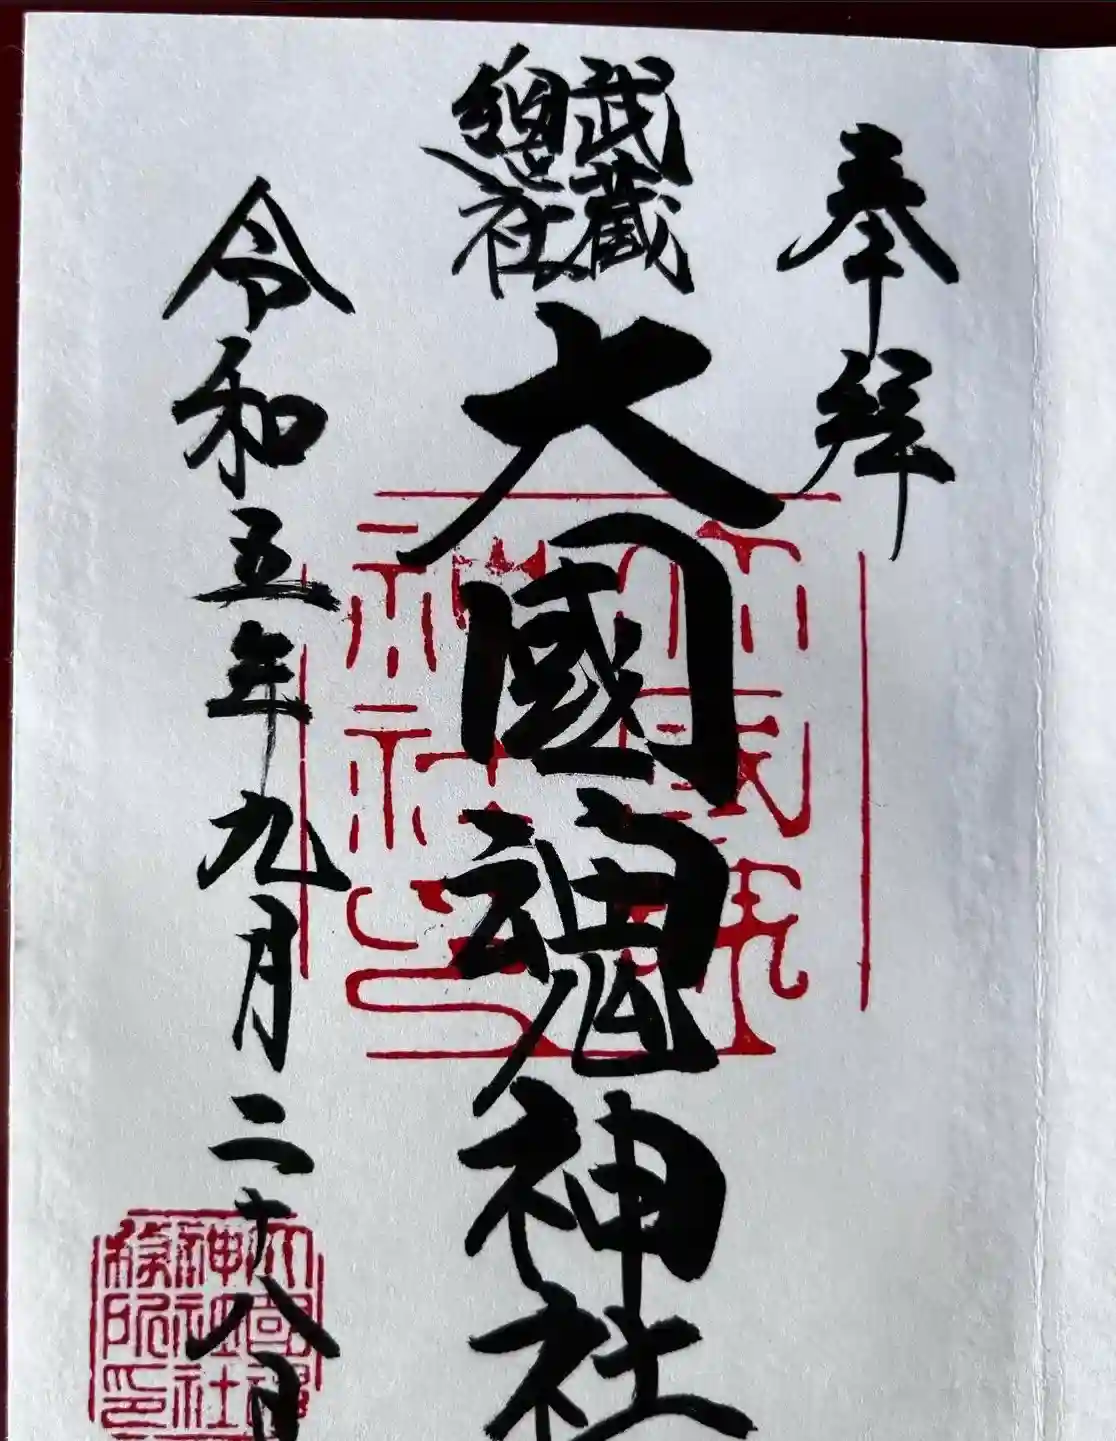 奉拜
武蔵
總社
大國魂神社
令和五年九月二十八日